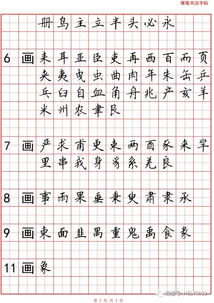 硬笔书法字帖
册鸟主立半头必永
6画 耒耳亚臣吏再西百而页
夹夷曳虫曲肉年朱缶乒
乓臼自血角舟兆产亥羊
米州农聿艮
7画 严求甫更束两酉来芈
里串我身豸系羌良
8画 事雨果垂秉臾肃隶承
9画 柬面韭禺重鬼禹食彖
11画 象